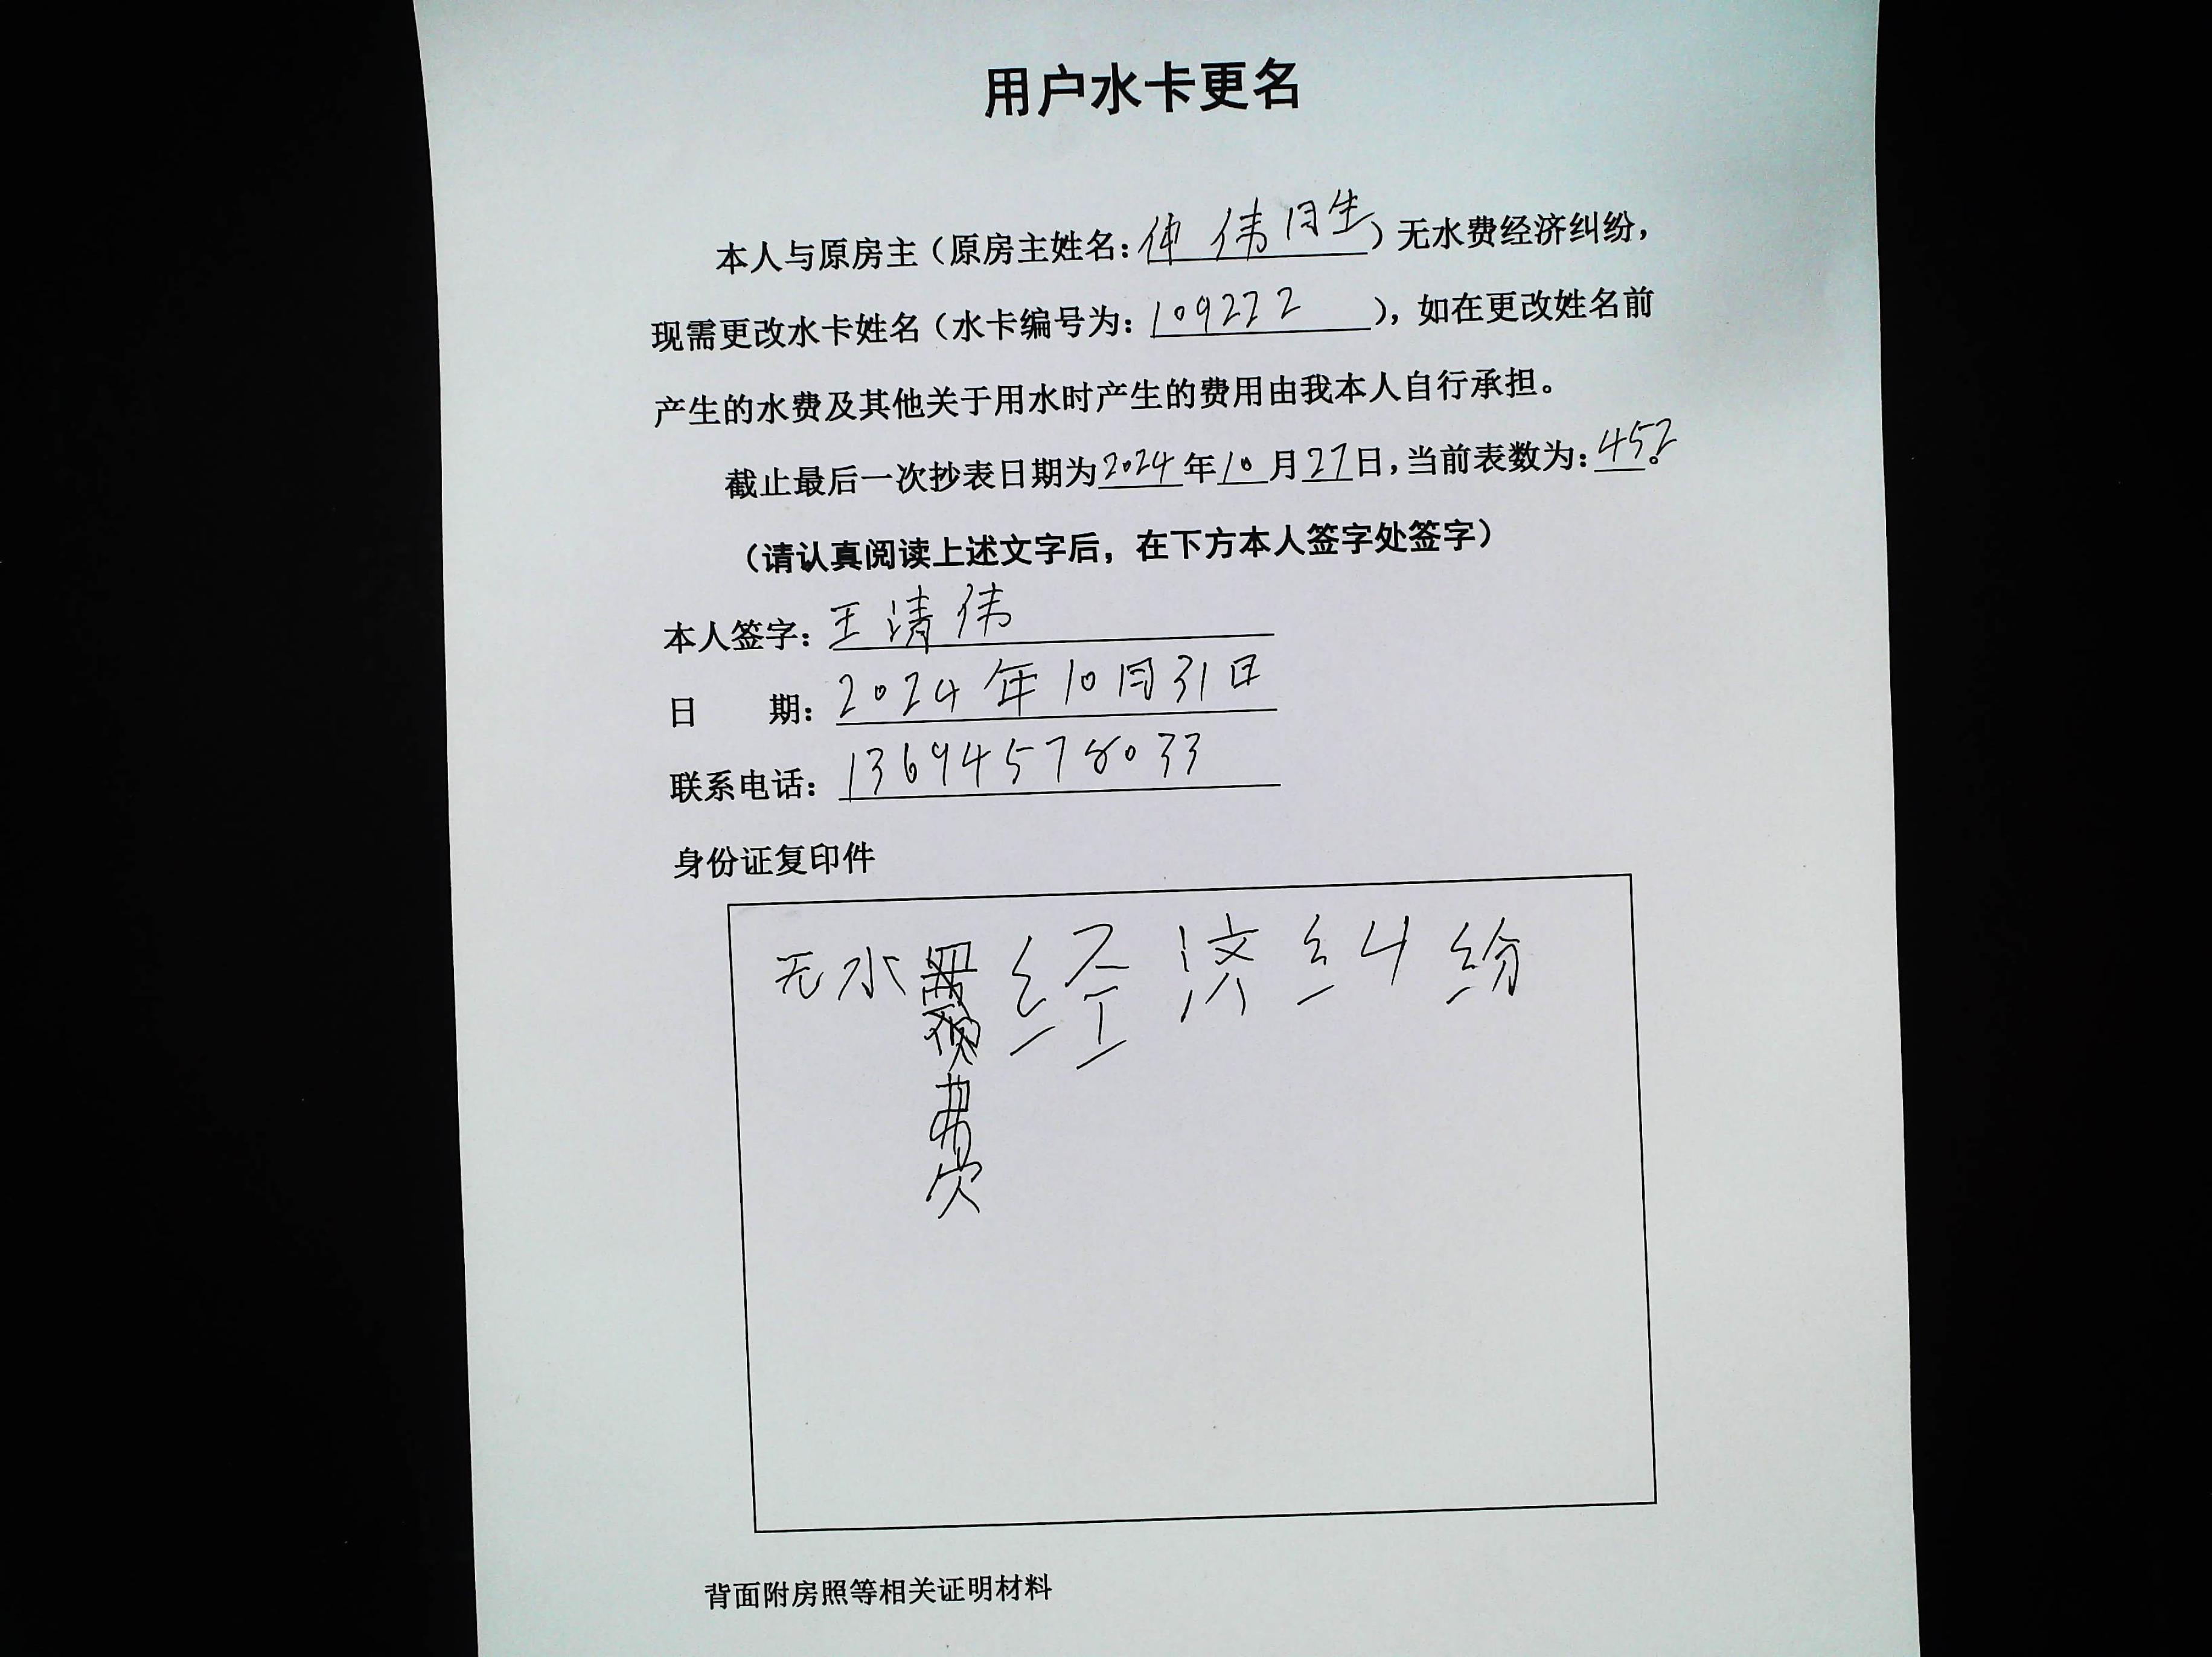 用户水卡更名
本人与原房主（原房主姓名：仲伟胜）无水费经济纠纷，
现需更改水卡姓名（水卡编号为：109222），如在更改姓名前
产生的水费及其他关于用水时产生的费用由我本人自行承担。
截止最后一次抄表日期为2024年10月27日，当前表数为：452。
（请认真阅读上述文字后，在下方本人签字处签字）
本人签字：王清伟
日 期：2024年10月31日
联系电话：13694578033
身份证复印件
无水费经济纠纷
背面附房照等相关证明材料